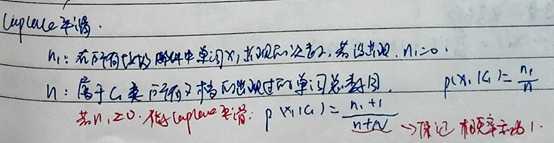 Laplace平滑.
n₁: 在所有   邮件中单词x₁出现的次数, 若没出现, n₁=0.
n: 属于C₁类所有文档的出现过的单词总数目. p(x₁|C₁)=n₁/n
若n₁=0. 做Laplace平滑: p(x₁|C₁)=(n₁+1)/(n+N) → 保证 概率和为1.